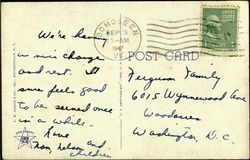 BOMOSEEN
SEP
1-PM
194
VT.
POST CARD
We're having
a nice change
and rest. It
sure feels good
to be served once
in a while.
Love
Mom, Nelson and
children
Ferguson Family
6015 Wynnewood Ave
Woodacres
Washington, D.C